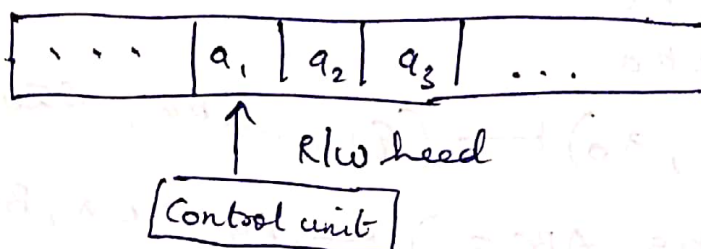 ... a₁ a₂ a₃ ...
R/W head
Control unit